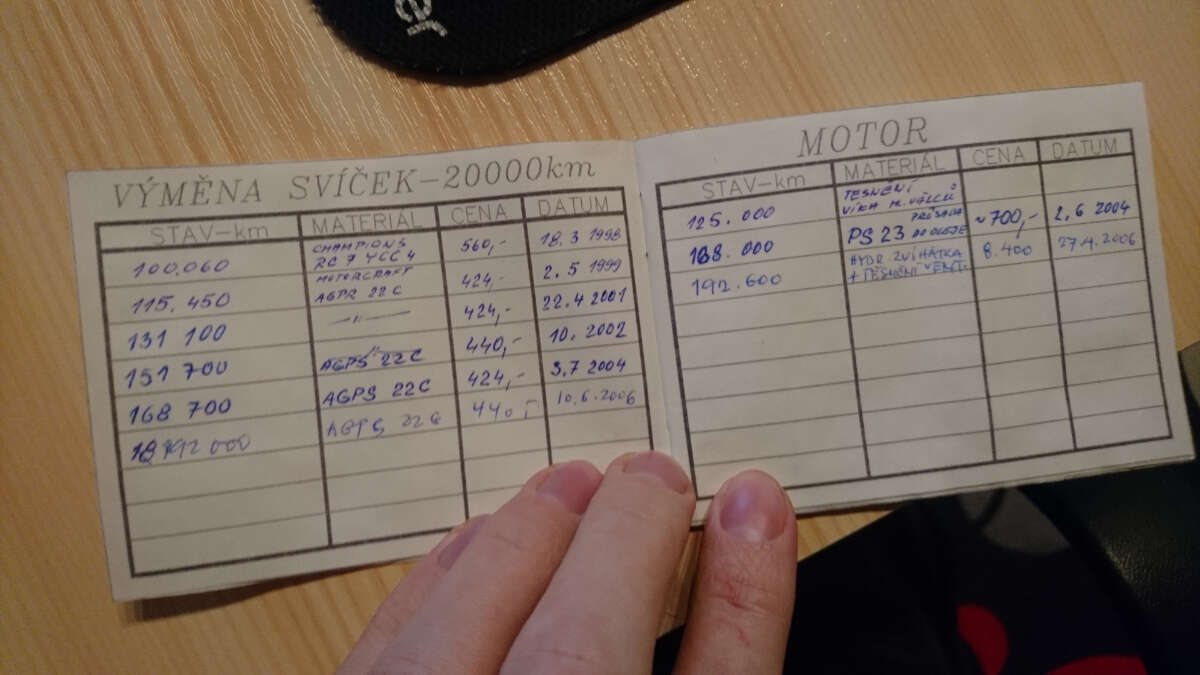 er
VÝMĚNA SVÍČEK-20000km
STAV-km MATERIÁL CENA DATUM
100.060 CHAMPIONS RC 7 YCC 4 560,- 18.3 1998
115.450 MOTORCRAFT AGPR 22 C 424,- 2.5 1999
131 100 -〃- 424,- 22.4 2001
151 700 AGPS 22C 440,- 10. 2002
168 700 AGPS 22C 424,- 3.7 2004
192 000 AGPS 22 C 440 10.6.2006
MOTOR
STAV-km MATERIÁL CENA DATUM
125.000 TESNENÍ VÍKA H. VÁLCŮ
168.000 PS 23 PŘÍSADA DO OLEJE ~700,- 2.6 2004
192.600 HYDR ZVIHÁTKA + TESNĚNÍ VENT. 8.400 27.4.2006